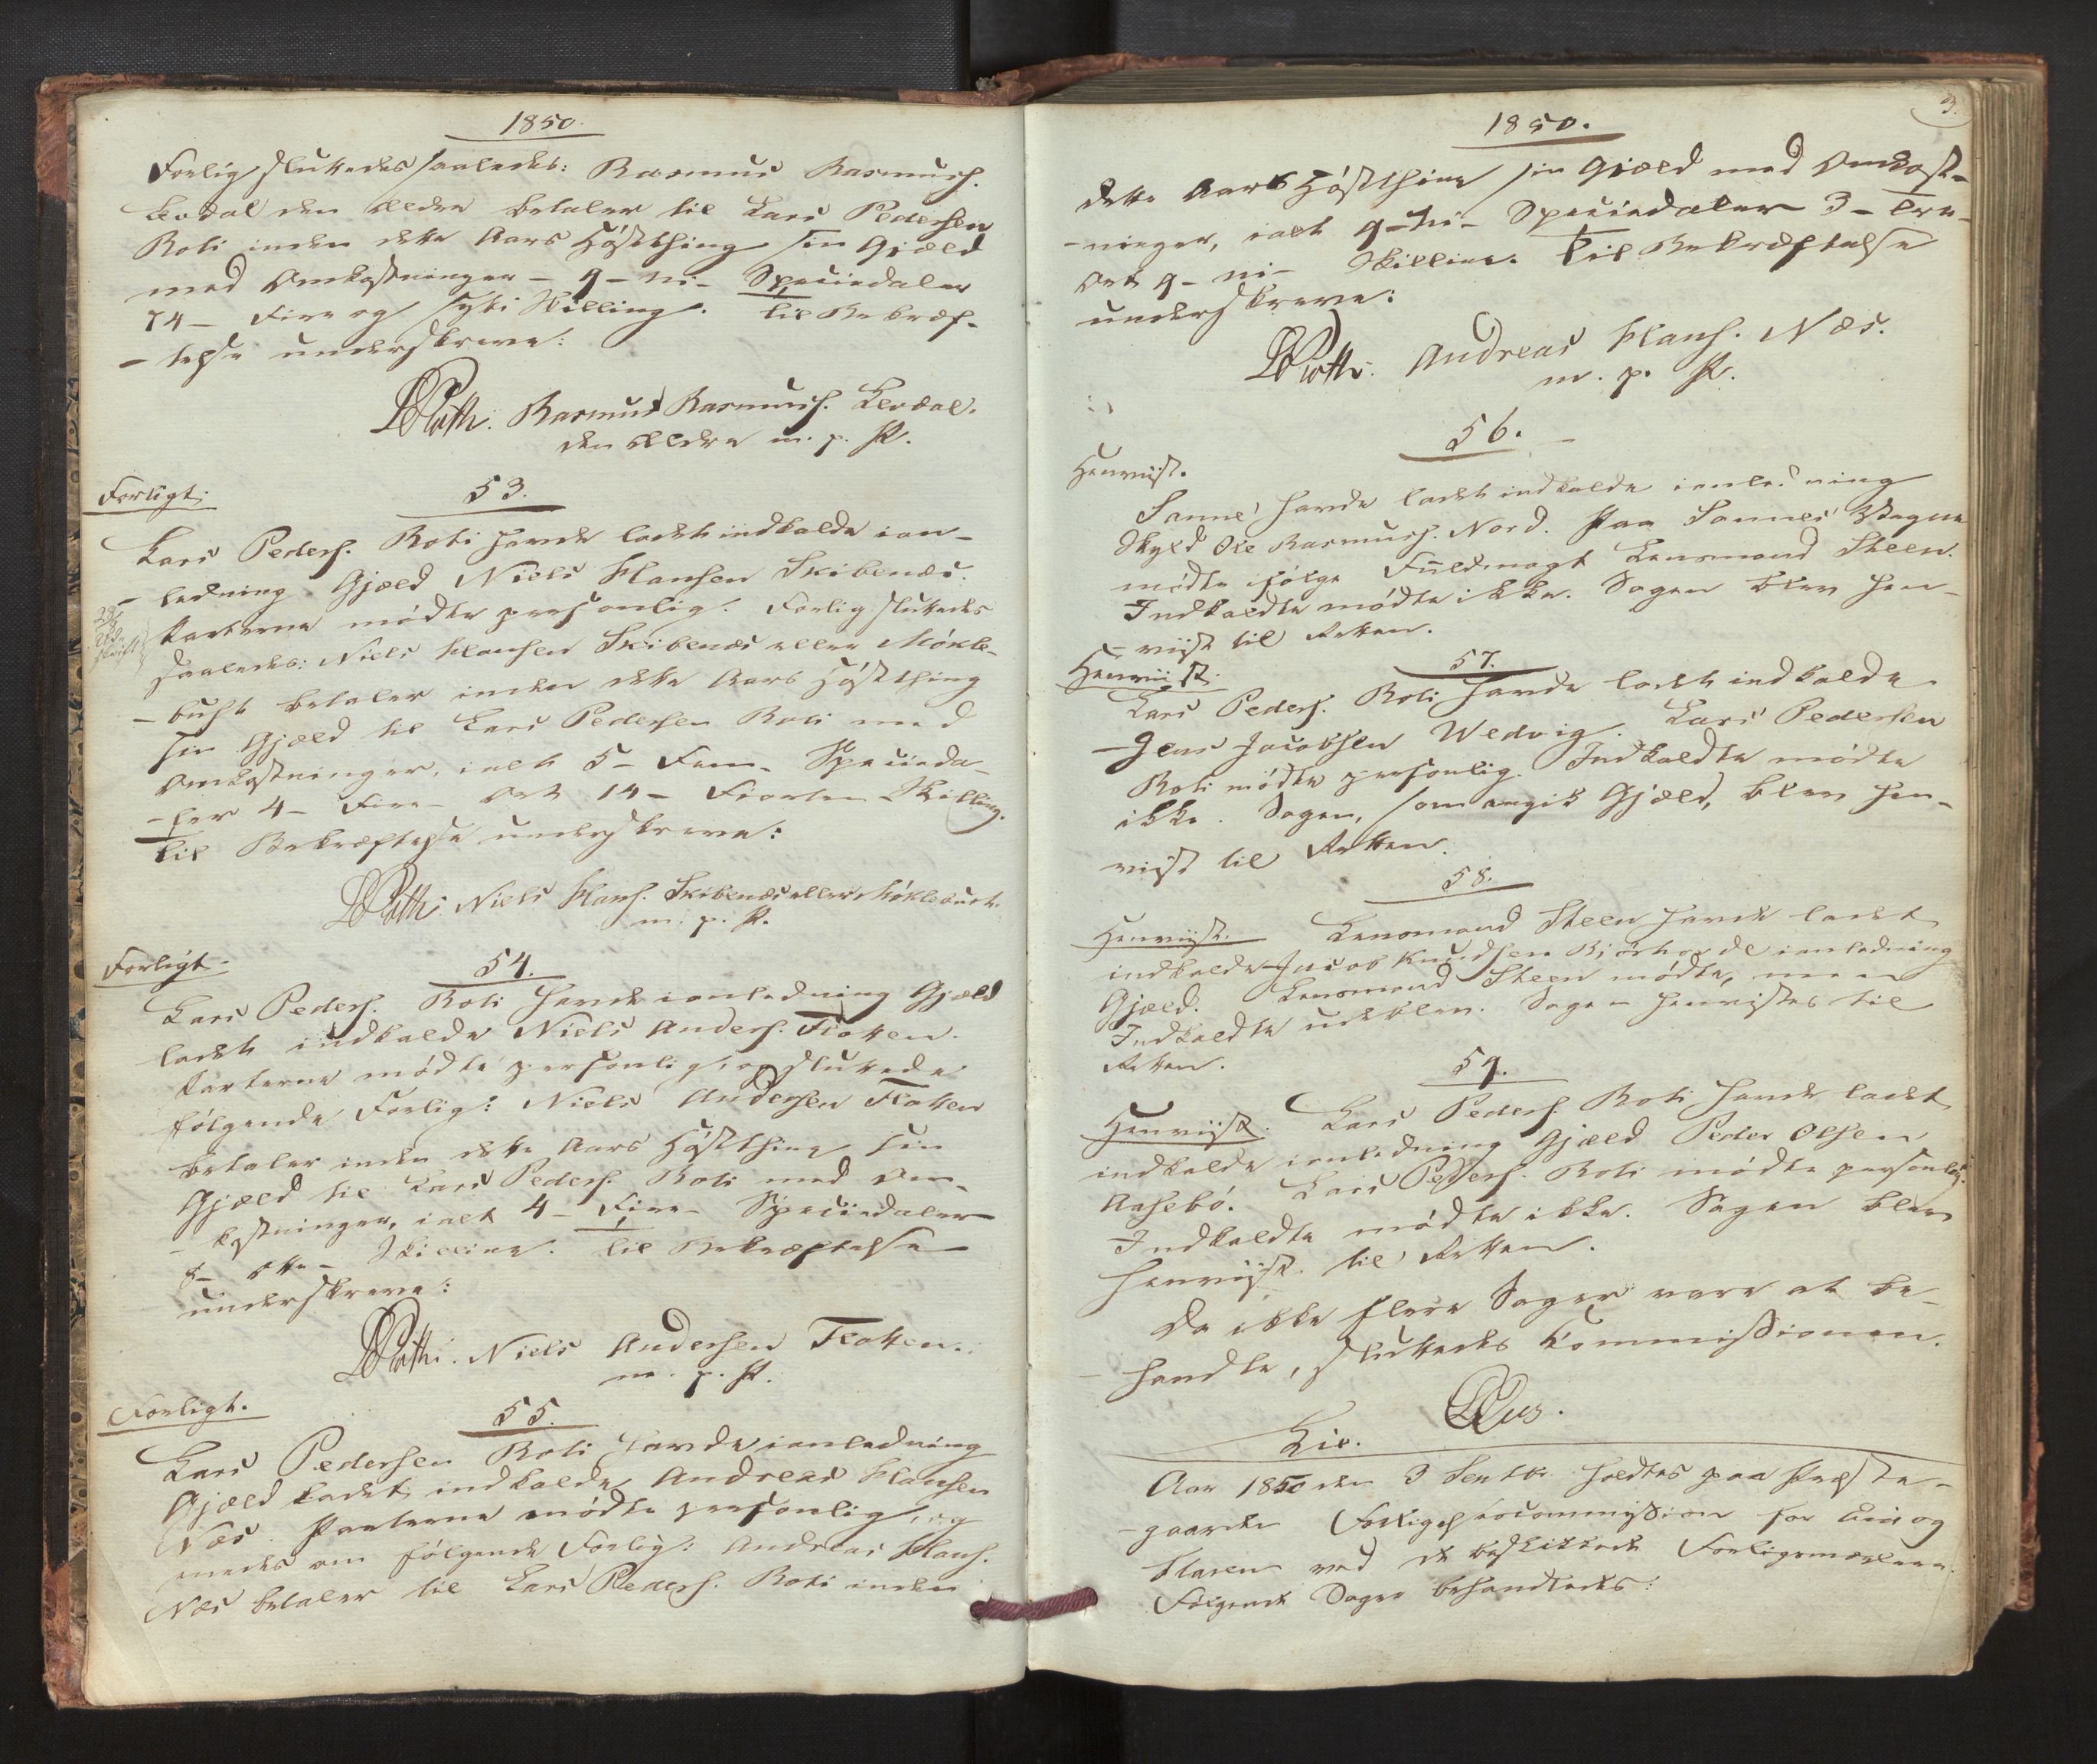 1850.
Forlig sluttedes saaledes: Rasmus Rasmuss.
Levdal den ældre betaler til Lars Pedersen
Roti inden dette Aars Høstthing sin Gjæld
med Omkostninger - 9 - ni - Speciedaler
74 - Fire og sytti Skilling. Til Bekræf-
- telse underskreve:
Rasmus Rasmuss. Levdal.
den ældre m. p. P.
Forligt.
53.
Lars Peders. Roti havde ladet indkalde ian-
- ledning Gjæld Niels Hansen Skibenæs.
Parterne mødte personlig. Forlig sluttedes
saaledes: Niels Hansen Skibenæs eller Møkle-
- bust betaler inden dette Aars Høstthing
sin Gjæld til Lars Pedersen Roti med
Omkostninger, ialt 5 - Fem - Specieda-
- ler 4 - Fire - Ort 14 - Fiorten Skilling.
Til Bekræftelse underskreve:
Niels Hans. Skibenæs eller Møklebust.
m. p. P.
Forligt.
54.
Lars Peders. Roti havde ianledning Gjæld
ladet indkalde Niels Anders. Flotten.
Parterne mødte personlig, og sluttede
følgende Forlig: Niels Andersen Flotten
betaler inden dette Aars Høstthing sin
Gjæld til Lars Peders. Roti med Om-
- kostninger, ialt 4 - Fire - Speciedaler
8 - otte - Skilling. Til Bekræftelse
underskreve:
Niels Andersen Flotten.
m. p. P.
Forligt.
55.
Lars Pedersen Roti havde ianledning
Gjæld ladet indkalde Andreas Hansen
Næs. Parterne mødte personlig, og
enedes om følgende Forlig: Andreas Hans.
Næs betaler til Lars Peders. Roti inden
3.
1850.
dette Aars Høstthing sin Gjæld med Omkost-
- ninger, ialt 9 - ni - Speciedaler 3 - tre -
Ort 9 - ni - Skilling. Til Bekræftelse
underskreve:
Andreas Hans. Næs.
m. p. P.
56.
Henviist.
Sanne havde ladet indkalde ianledning
Skyld Ole Rasmuss. Nord. Paa Sannes Vegne
mødte ifølge Fuldmagt Lensmand Steen.
Indkaldte mødte ikke. Sagen blev hen-
- viist til Retten.
Henviist.
57.
Lars Peders. Roti havde ladet indkalde
Jens Jacobsen Wedvig. Lars Pedersen
Roti mødte personlig. Indkaldte mødte
ikke. Sagen, som angik Gjæld, blev hen-
viist til Retten.
58.
Henviist. Lensmand Steen havde ladet
indkalde Jacob Knudsen ianledning
Gjæld. Lensmand Steen mødte, men
Indkaldte udeblev. Sagen henvistes til
Retten.
59.
Henviist. Lars Peders. Roti havde ladet
indkalde ianledning Gjæld Peder Olsen
Aasebø. Lars Peders. Roti mødte personlig.
Indkaldte mødte ikke. Sagen blev
henviist til Retten.
Da ikke flere Sager vare at be-
- handle, sluttedes Kommissionen.
Lie.
Aar 1850 den 3 Septbr. holdtes paa Præste-
- gaarden Forligelsescommission for
ved de beskikkede Forligsmæglere.
Følgende Sager behandledes: